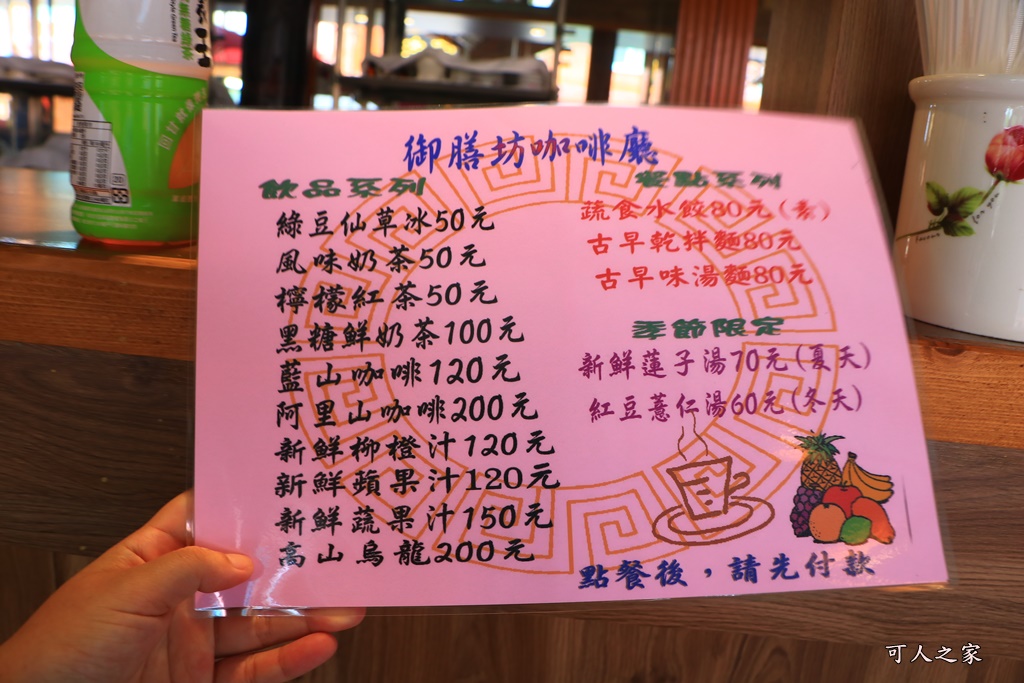 御膳坊咖啡廳
飲品系列
綠豆仙草冰50元
風味奶茶50元
檸檬紅茶50元
黑糖鮮奶茶100元
藍山咖啡120元
阿里山咖啡200元
新鮮柳橙汁120元
新鮮蘋果汁120元
新鮮蔬果汁150元
高山烏龍200元
餐點系列
蔬食水餃80元(素)
古早乾拌麵80元
古早味湯麵80元
季節限定
新鮮蓮子湯70元(夏天)
紅豆薏仁湯60元(冬天)
點餐後，請先付款
for you
可人之家